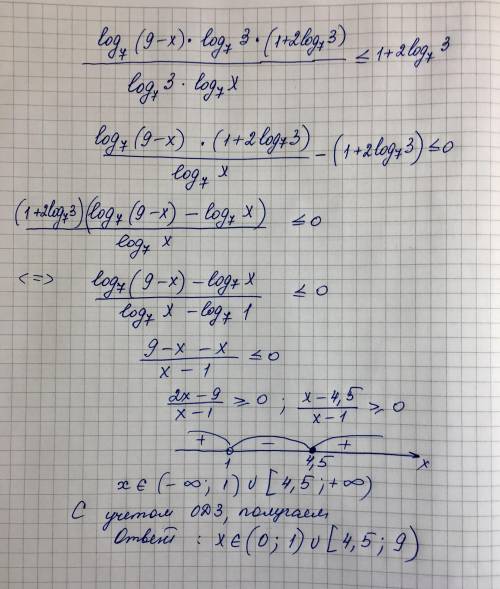 log₇(9-x)·log₇3·(1+2log₇3) / log₇3·log₇x ≤ 1+2log₇3
log₇(9-x)·(1+2log₇3) / log₇x - (1+2log₇3) ≤ 0
(1+2log₇3)(log₇(9-x) - log₇x) / log₇x ≤ 0
<=> log₇(9-x) - log₇x / log₇x - log₇1 ≤ 0
9-x-x / x-1 ≤ 0
2x-9 / x-1 ≥ 0 ; x-4,5 / x-1 ≥ 0
+ - +
1 4,5 x
x ∈ (-∞; 1) ∪ [4,5; +∞)
С учетом ОДЗ, получаем
Ответ: x ∈ (0; 1) ∪ [4,5; 9)